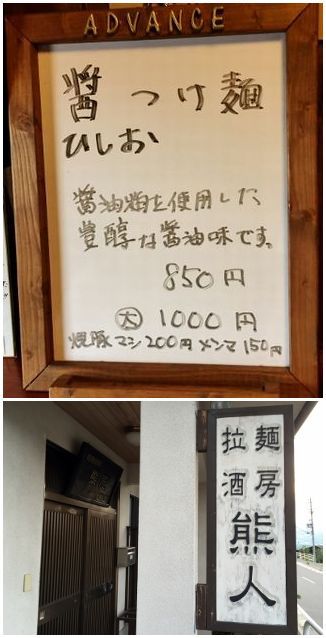 ADVANCE
醤つけ麺
ひしお
醤油粕を使用した、
豊醇な醤油味です。
850円
大 1000円
焼豚マシ200円 メンマ150円
麺房
拉酒
熊人